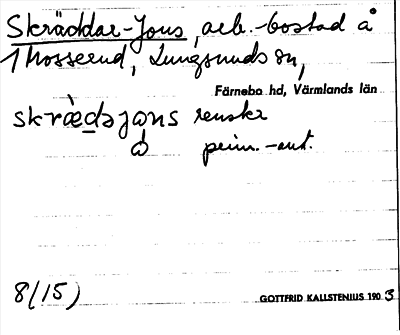 Skräddar-Jons, arb.-bostad å
Mosserud, Lungsunds sn,
Färnebo hd, Värmlands län
skræ̀dəjɷns renskr
ɷ prim.-ant.
8/(15)
GOTTFRID KALLSTENIUS 190 3